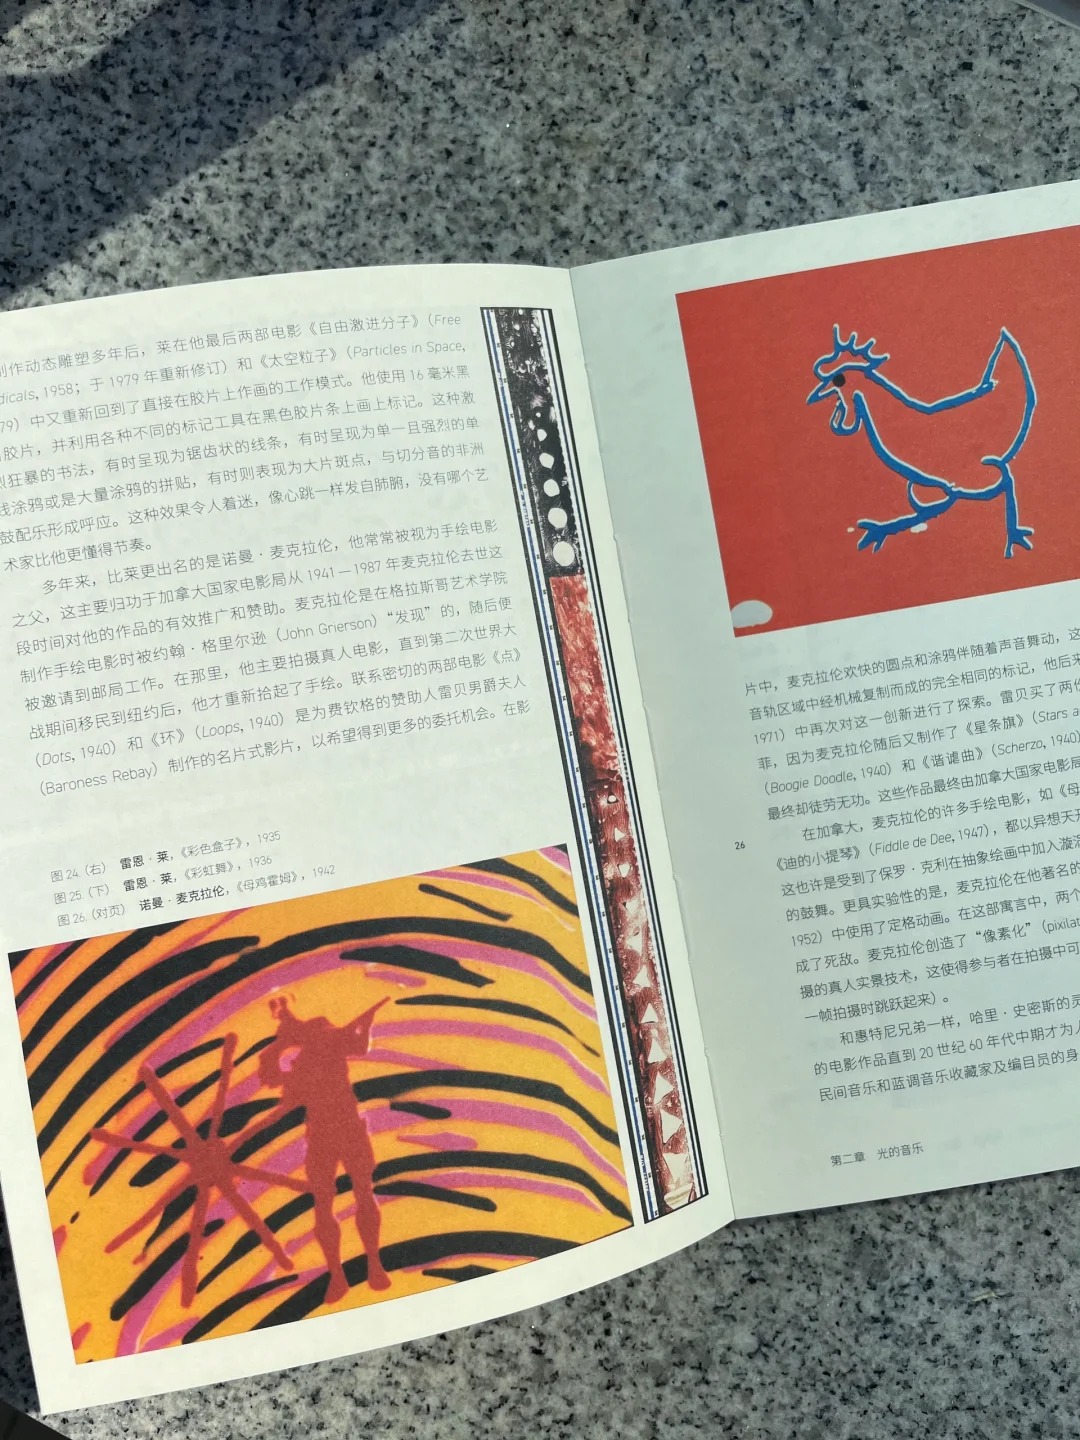 制作动态雕塑多年后，莱在他最后两部电影《自由激进分子》（Free
dicals, 1958；于 1979 年重新修订）和《太空粒子》（Particles in Space,
79）中又重新回到了直接在胶片上作画的工作模式。他使用 16 毫米黑
胶片，并利用各种不同的标记工具在黑色胶片条上画上标记。这种激
烈狂暴的书法，有时呈现为锯齿状的线条，有时呈现为单一且强烈的单
线涂鸦或是大量涂鸦的拼贴，有时则表现为大片斑点，与切分音的非洲
鼓配乐形成呼应。这种效果令人着迷，像心跳一样发自肺腑，没有哪个艺
术家比他更懂得节奏。
多年来，比莱更出名的是诺曼·麦克拉伦，他常常被视为手绘电影
之父，这主要归功于加拿大国家电影局从 1941—1987 年麦克拉伦去世这
段时间对他的作品的有效推广和赞助。麦克拉伦是在格拉斯哥艺术学院
制作手绘电影时被约翰·格里尔逊（John Grierson）“发现”的，随后便
被邀请到邮局工作。在那里，他主要拍摄真人电影，直到第二次世界大
战期间移民到纽约后，他才重新拾起了手绘。联系密切的两部电影《点》
（Dots, 1940）和《环》（Loops, 1940）是为费钦格的赞助人雷贝男爵夫人
（Baroness Rebay）制作的名片式影片，以希望得到更多的委托机会。在影
图 24.（右） 雷恩·莱，《彩色盒子》，1935
图 25.（下） 雷恩·莱，《彩虹舞》，1936
图 26.（对页） 诺曼·麦克拉伦，《母鸡霍姆》，1942
片中，麦克拉伦欢快的圆点和涂鸦伴随着声音舞动，这
音轨区域中经机械复制而成的完全相同的标记，他后来
1971）中再次对这一创新进行了探索。雷贝买了两份
菲，因为麦克拉伦随后又制作了《星条旗》（Stars a
（Boogie Doodle, 1940）和《谐谑曲》（Scherzo, 1940）
最终却徒劳无功。这些作品最终由加拿大国家电影局
在加拿大，麦克拉伦的许多手绘电影，如《母
《迪的小提琴》（Fiddle de Dee, 1947），都以异想天开
这也许是受到了保罗·克利在抽象绘画中加入漩涡
的鼓舞。更具实验性的是，麦克拉伦在他著名的
1952）中使用了定格动画。在这部寓言中，两个
成了死敌。麦克拉伦创造了“像素化”（pixilat
摄的真人实景技术，这使得参与者在拍摄中可
一帧拍摄时跳跃起来）。
和惠特尼兄弟一样，哈里·史密斯的灵
的电影作品直到 20 世纪 60 年代中期才为人
民间音乐和蓝调音乐收藏家及编目员的身
26
第二章 光的音乐